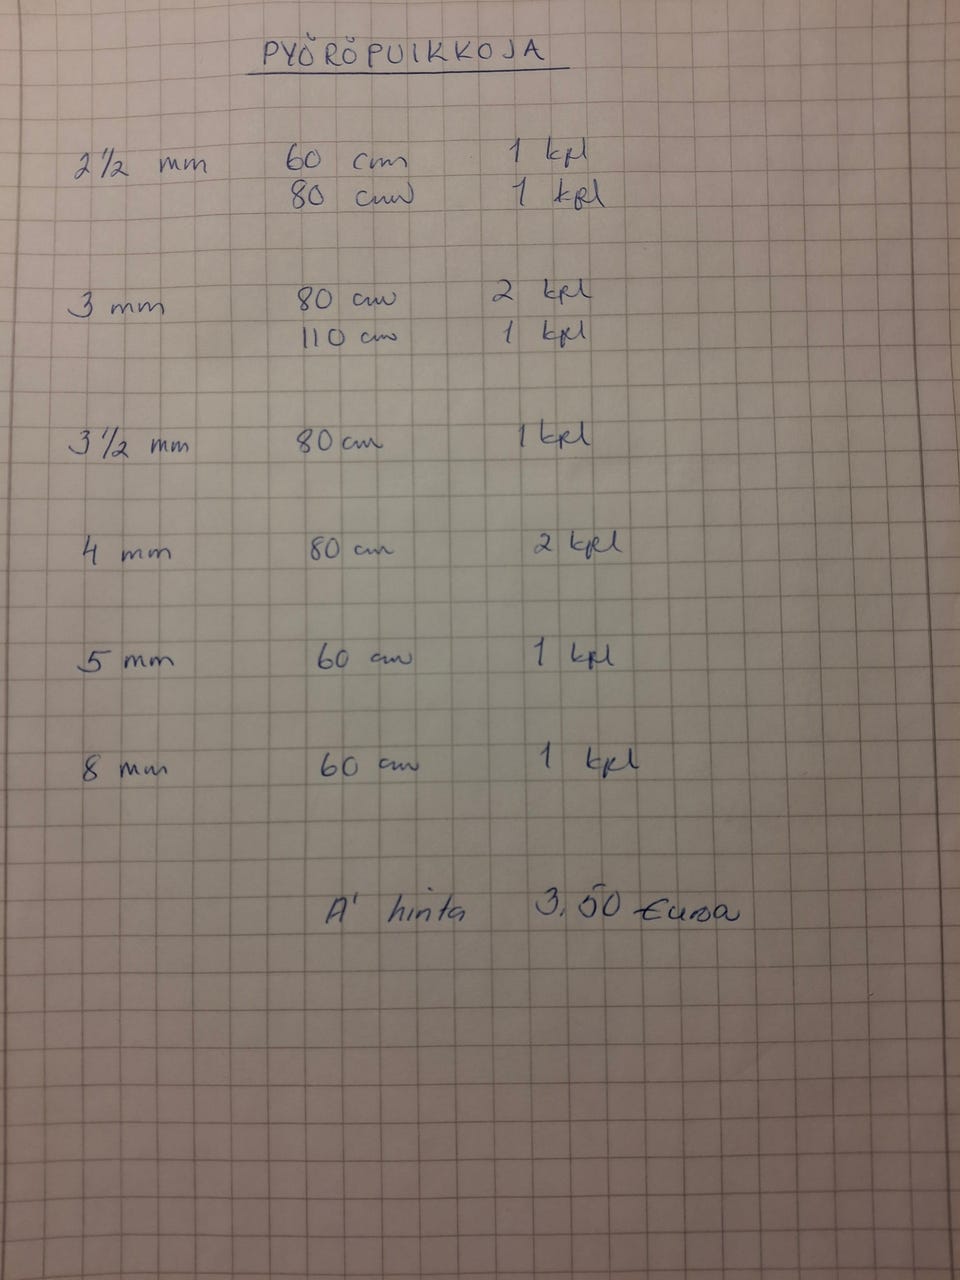 PYÖRÖPUIKKOJA
2 1/2 mm 60 cm 1 kpl
80 cm 1 kpl
3 mm 80 cm 2 kpl
110 cm 1 kpl
3 1/2 mm 80 cm 1 kpl
4 mm 80 cm 2 kpl
5 mm 60 cm 1 kpl
8 mm 60 cm 1 kpl
A' hinta 3,50 Euroa